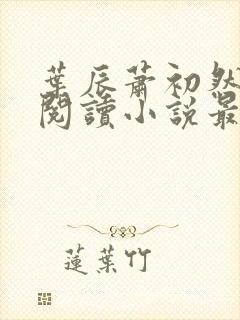 葉辰蕭初然
閱讀小説最
蓮葉竹